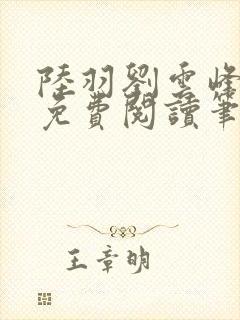 陸羽劉雲峰
免費閱讀筆
王章明